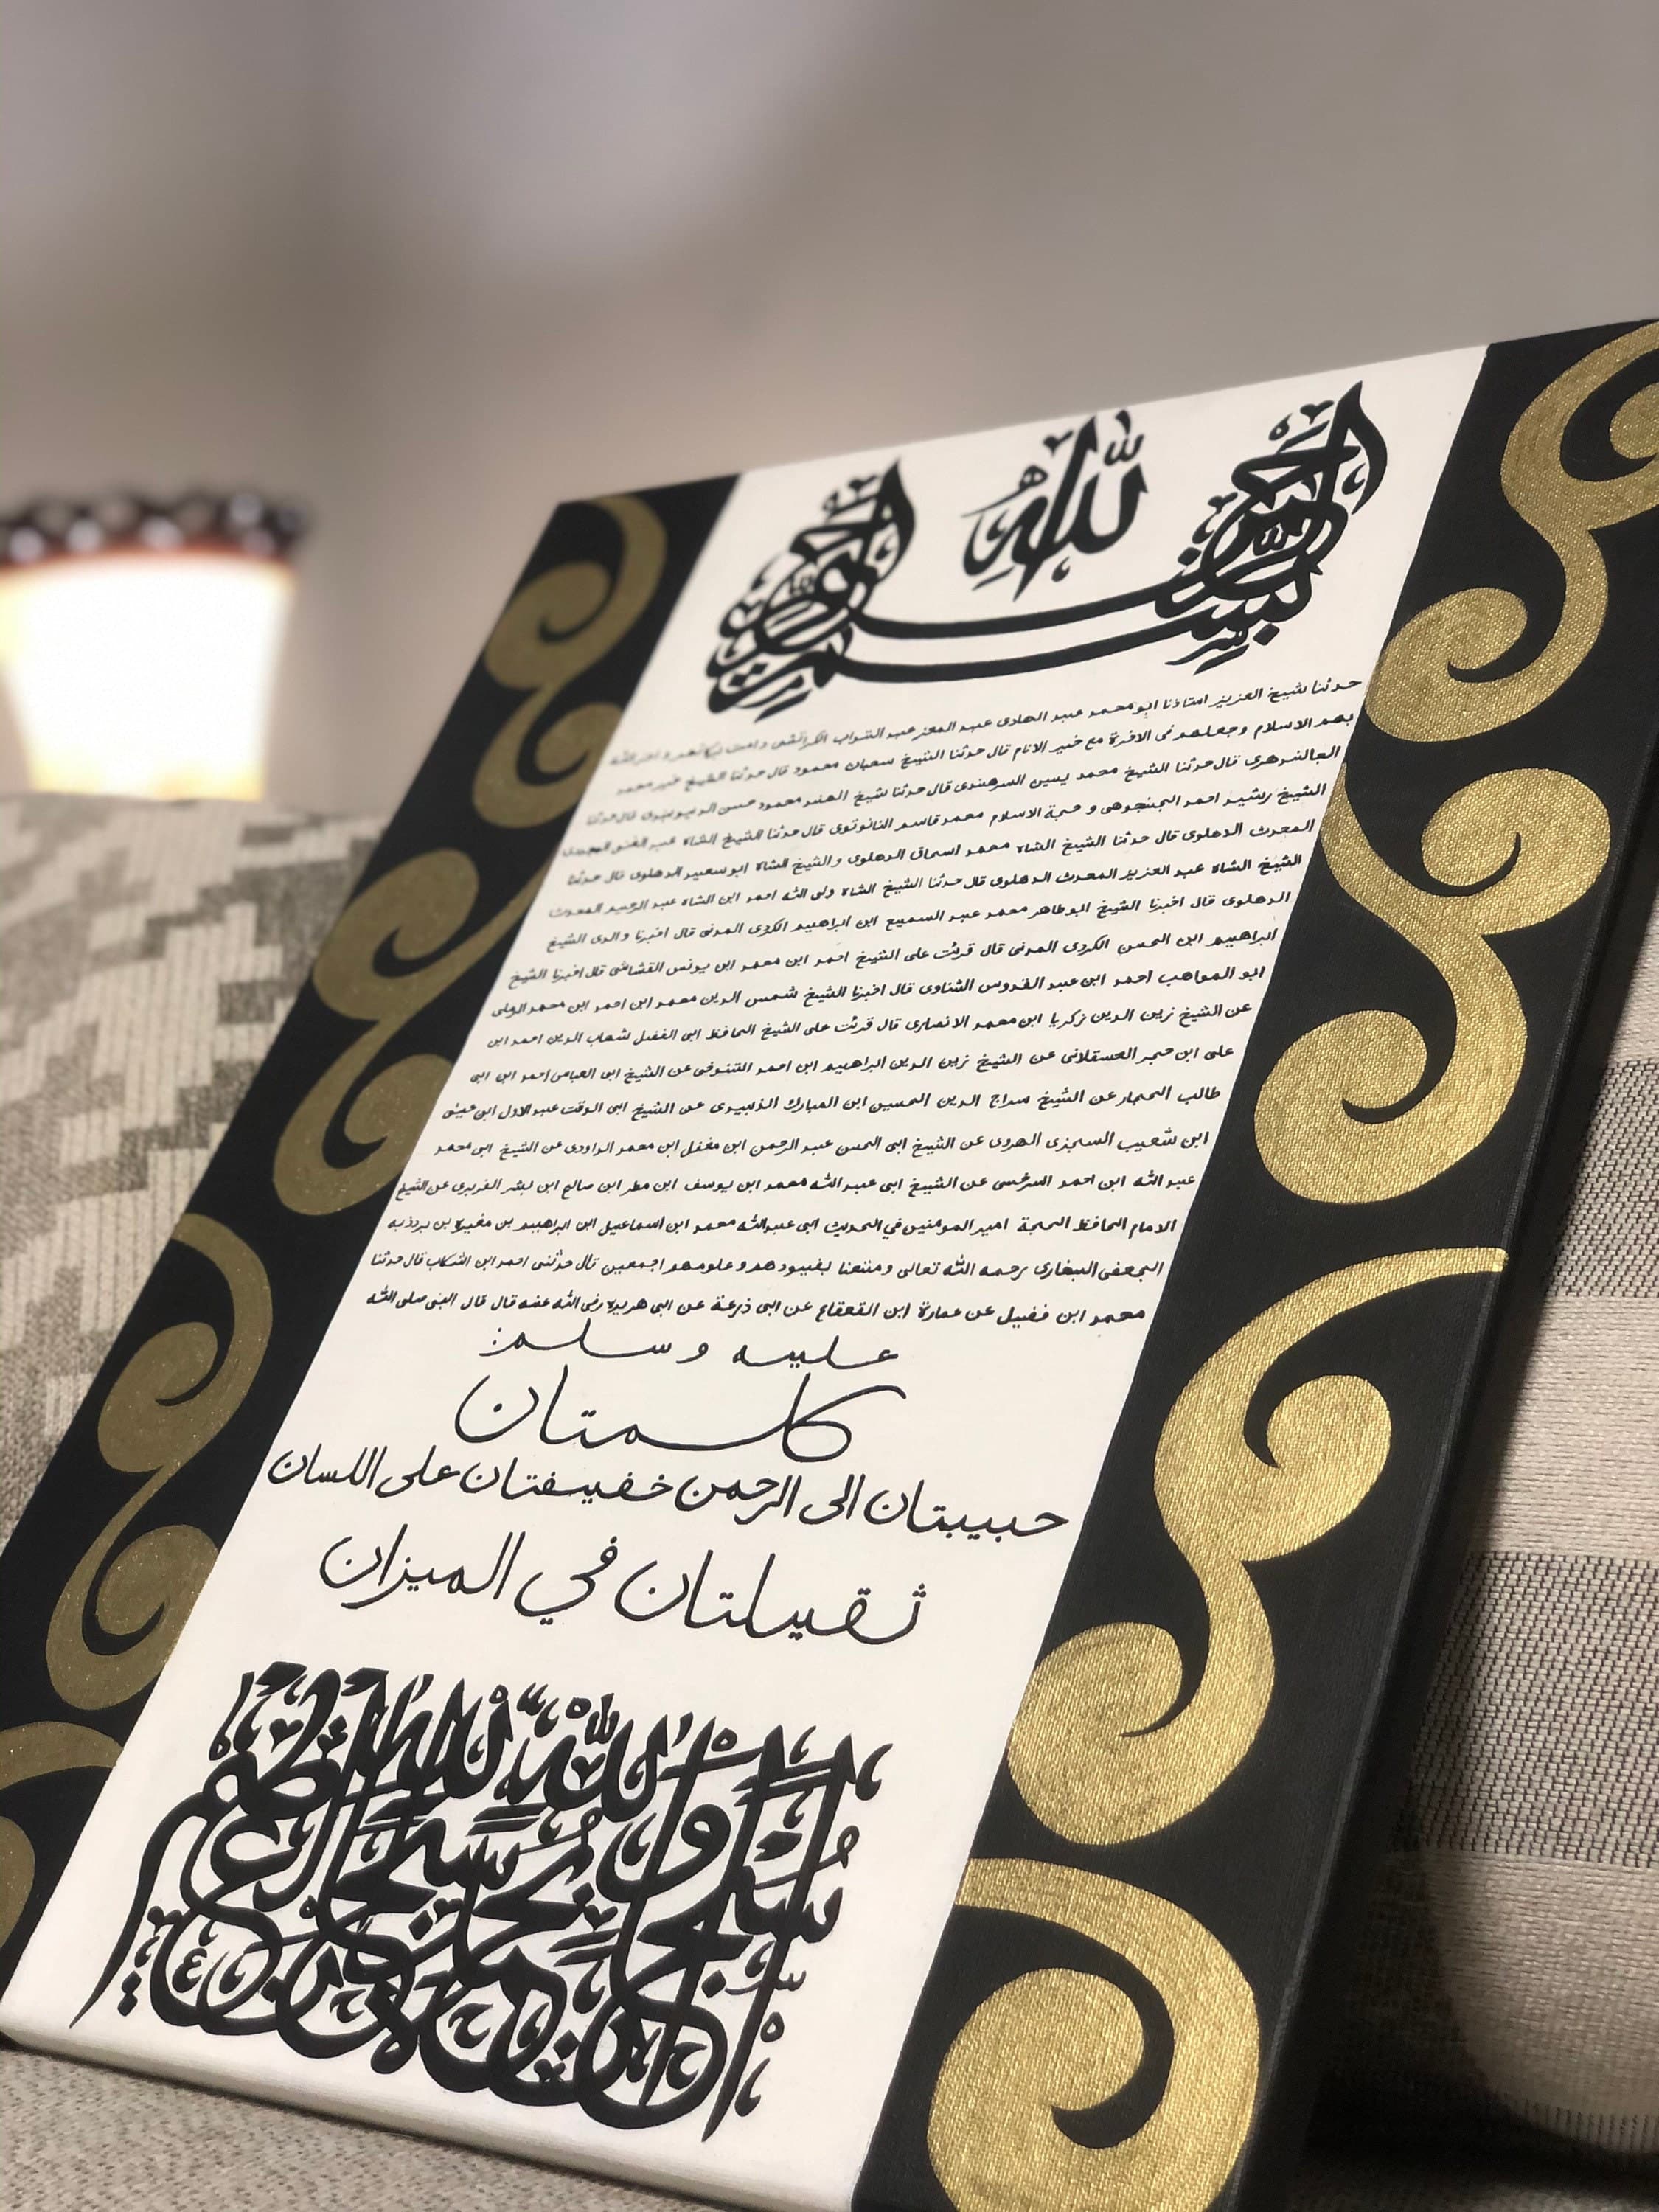 بسم الله الرحمن الرحيم
حدثنا شيخ العزيز استاذنا ابو محمد عبد الهادى عبد المعز عبد التواب
بهم الاسلام وجعلهم فى الاخرة مع خير الانام قال حدثنا الشيخ سعبان محمود قال حدثنا الشيخ خير محمد
الجالندهرى قال حدثنا الشيخ محمد يسين السرهندى قال حدثنا شيخ الهند محمود حسن الديوبندى قال حدثنا
الشيخ رشيد احمد الجنجوهى و حجة الاسلام محمد قاسم النانوتوى قال حدثنا الشيخ الشاه عبد الغنى المجددى
المحدث الدهلوى قال حدثنا الشيخ الشاه محمد اسحاق الدهلوى والشيخ الشاه ابو سعيد الدهلوى قال حدثنا
الشيخ الشاه عبد العزيز المحدث الدهلوى قال حدثنا الشيخ الشاه ولى الله احمد ابن الشاه عبد الرحيم المحدث
الدهلوى قال اخبرنا الشيخ ابو طاهر محمد عبد السميع ابن ابراهيم الكردى المدنى قال اخبرنا والدى الشيخ
ابراهيم ابن الحسن الكردى المدنى قال قرئت على الشيخ احمد ابن محمد ابن يونس القشاشى قال اخبرنا الشيخ
ابو المواهب احمد ابن عبد القدوس الشناوى قال اخبرنا الشيخ شمس الدين محمد ابن احمد ابن محمد الرملى
عن الشيخ زين الدين زكريا ابن محمد الانصارى قال قرئت على الشيخ الحافظ ابى الفضل شهاب الدين احمد ابن
على ابن حجر العسقلانى عن الشيخ زين الدين ابراهيم ابن احمد التنوخى عن الشيخ ابى العباس احمد ابن ابى
طالب الحجار عن الشيخ سراج الدين الحسين ابن المبارك الزبيدى عن الشيخ ابى الوقت عبد الاول ابن عيسٰى
ابن شعيب السجزى الهروى عن الشيخ ابى الحسن عبد الرحمن ابن مغفل ابن محمد الداودى عن الشيخ ابى محمد
عبد الله ابن احمد السرخسى عن الشيخ ابى عبد الله محمد ابن يوسف ابن مطر ابن صالح ابن بشر الفربرى عن الشيخ
الامام الحافظ الحجة امير المومنين في الحديث ابى عبدالله محمد ابن اسماعيل ابن ابراهيم بن مغيرة بن بردزبه
الجعفى البخارى رحمه الله تعالى ومتعنا بفيودهم وعلومهم اجمعين قال حدثنى احمد ابن اشكاب قال حدثنا
محمد ابن فضيل عن عمارة ابن القعقاع عن ابى ذرعة عن ابى هريرة رضى الله عنه قال قال النبى صلى الله
عليه وسلم:
كلمتان
حبيبتان الى الرحمن خفيفتان على اللسان
ثقيلتان في الميزان
سبحان الله وبحمده سبحان الله العظيم